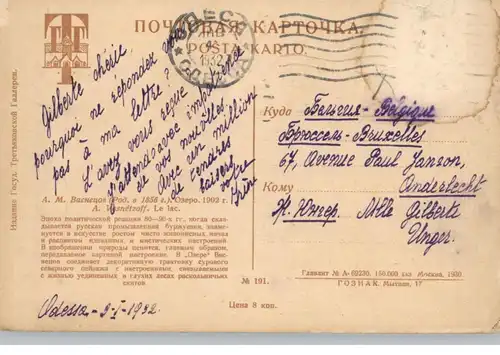 ПОЧТОВАЯ КАРТОЧКА.
POŜTA KARTO.
Издание Госуд. Третьяковской Галлереи.
Gilberte chérie,
pourquoi ne répondez vous
pas à ma lettre?
L'avez vous reçue?
J'attends avec impatience
de vos nouvelles.
Avec un million
de tendres
baisers
votre
Irène
А. М. Васнецов (Род. в 1856 г.). Озеро. 1902 г.
A. Wasnetzoff. Le lac.
Эпоха политической реакции 80—90-х гг., когда
складывается русская промышленная буржуазия,
в искусстве ростом части
и мистических настроений.
В изображении природы ценится, главным образом,
передаваемое картиной настроение. В „Озере" Вас-
нецов соединяет декоративную трактовку сурового
северного пейзажа с настроениями,
с жизнью уединенных в глухих лесах раскольничьих
скитов.
Куда Бельгия - Belgique
Брюссель - Bruxelles
67, Avenue Paul Janson,
Anderlecht
Кому
Ж. Юнгер. Mlle Gilberte
Unger.
№ 191.
Главлит № А-62330. 150.000 экз. Москва, 1930
ГОЗНАК. Мытная, 17
Цена 8 коп.
Odessa - 9-I-1932